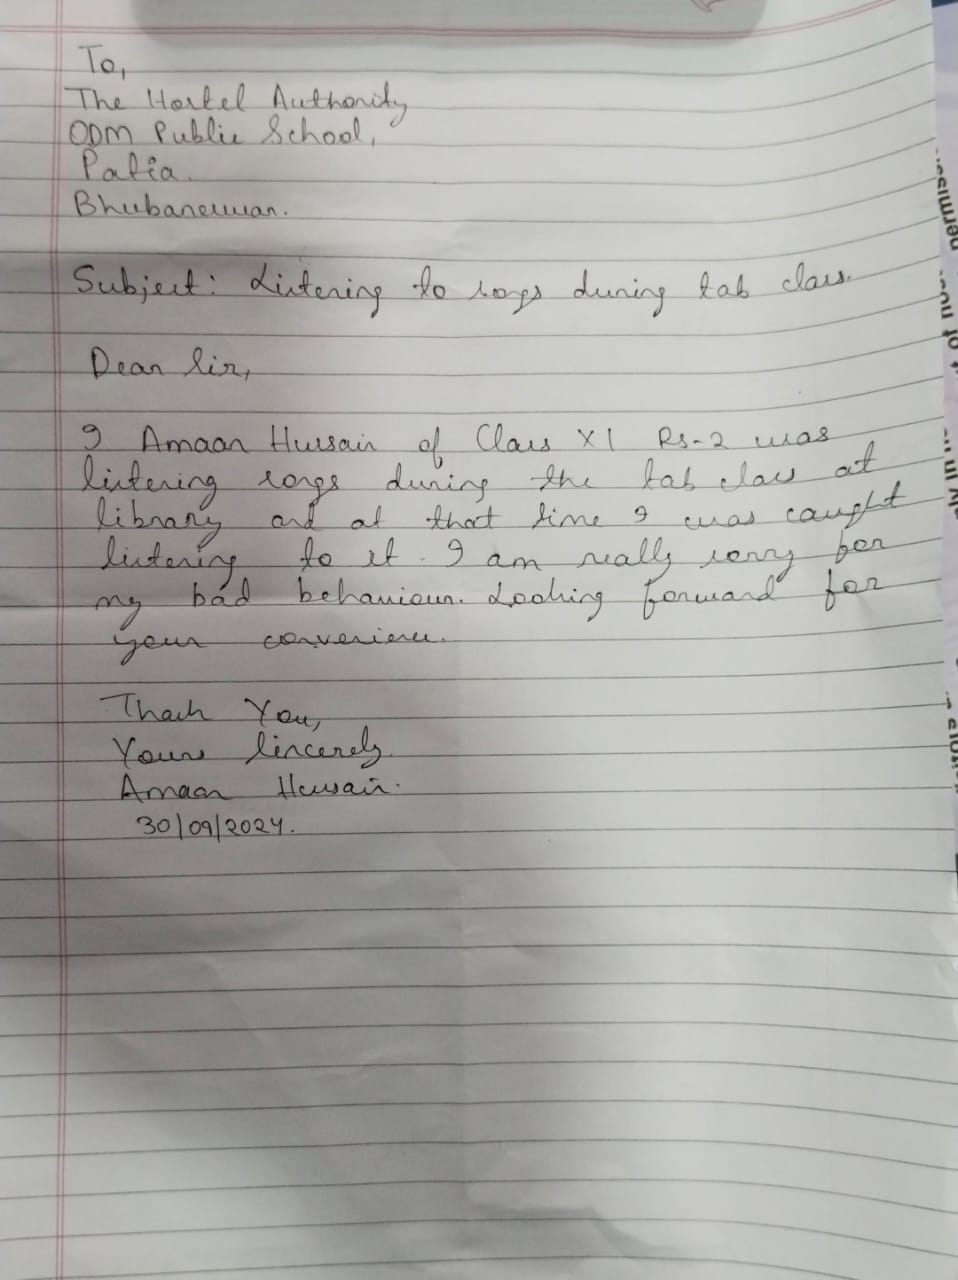 To,
The Hostel Authority
ODM Public School,
Patia.
Bhubaneswar.
Subject: Listening to songs during tab class.
Dear Sir,
I Amaan Hussain of Class XI RS-2 was
listening songs during the tab class at
library and at that time I was caught
listening to it. I am really sorry for
my bad behaviour. Looking forward for
your convenience.
Thank You,
Yours Sincerely
Amaan Hussain.
30/09/2024.